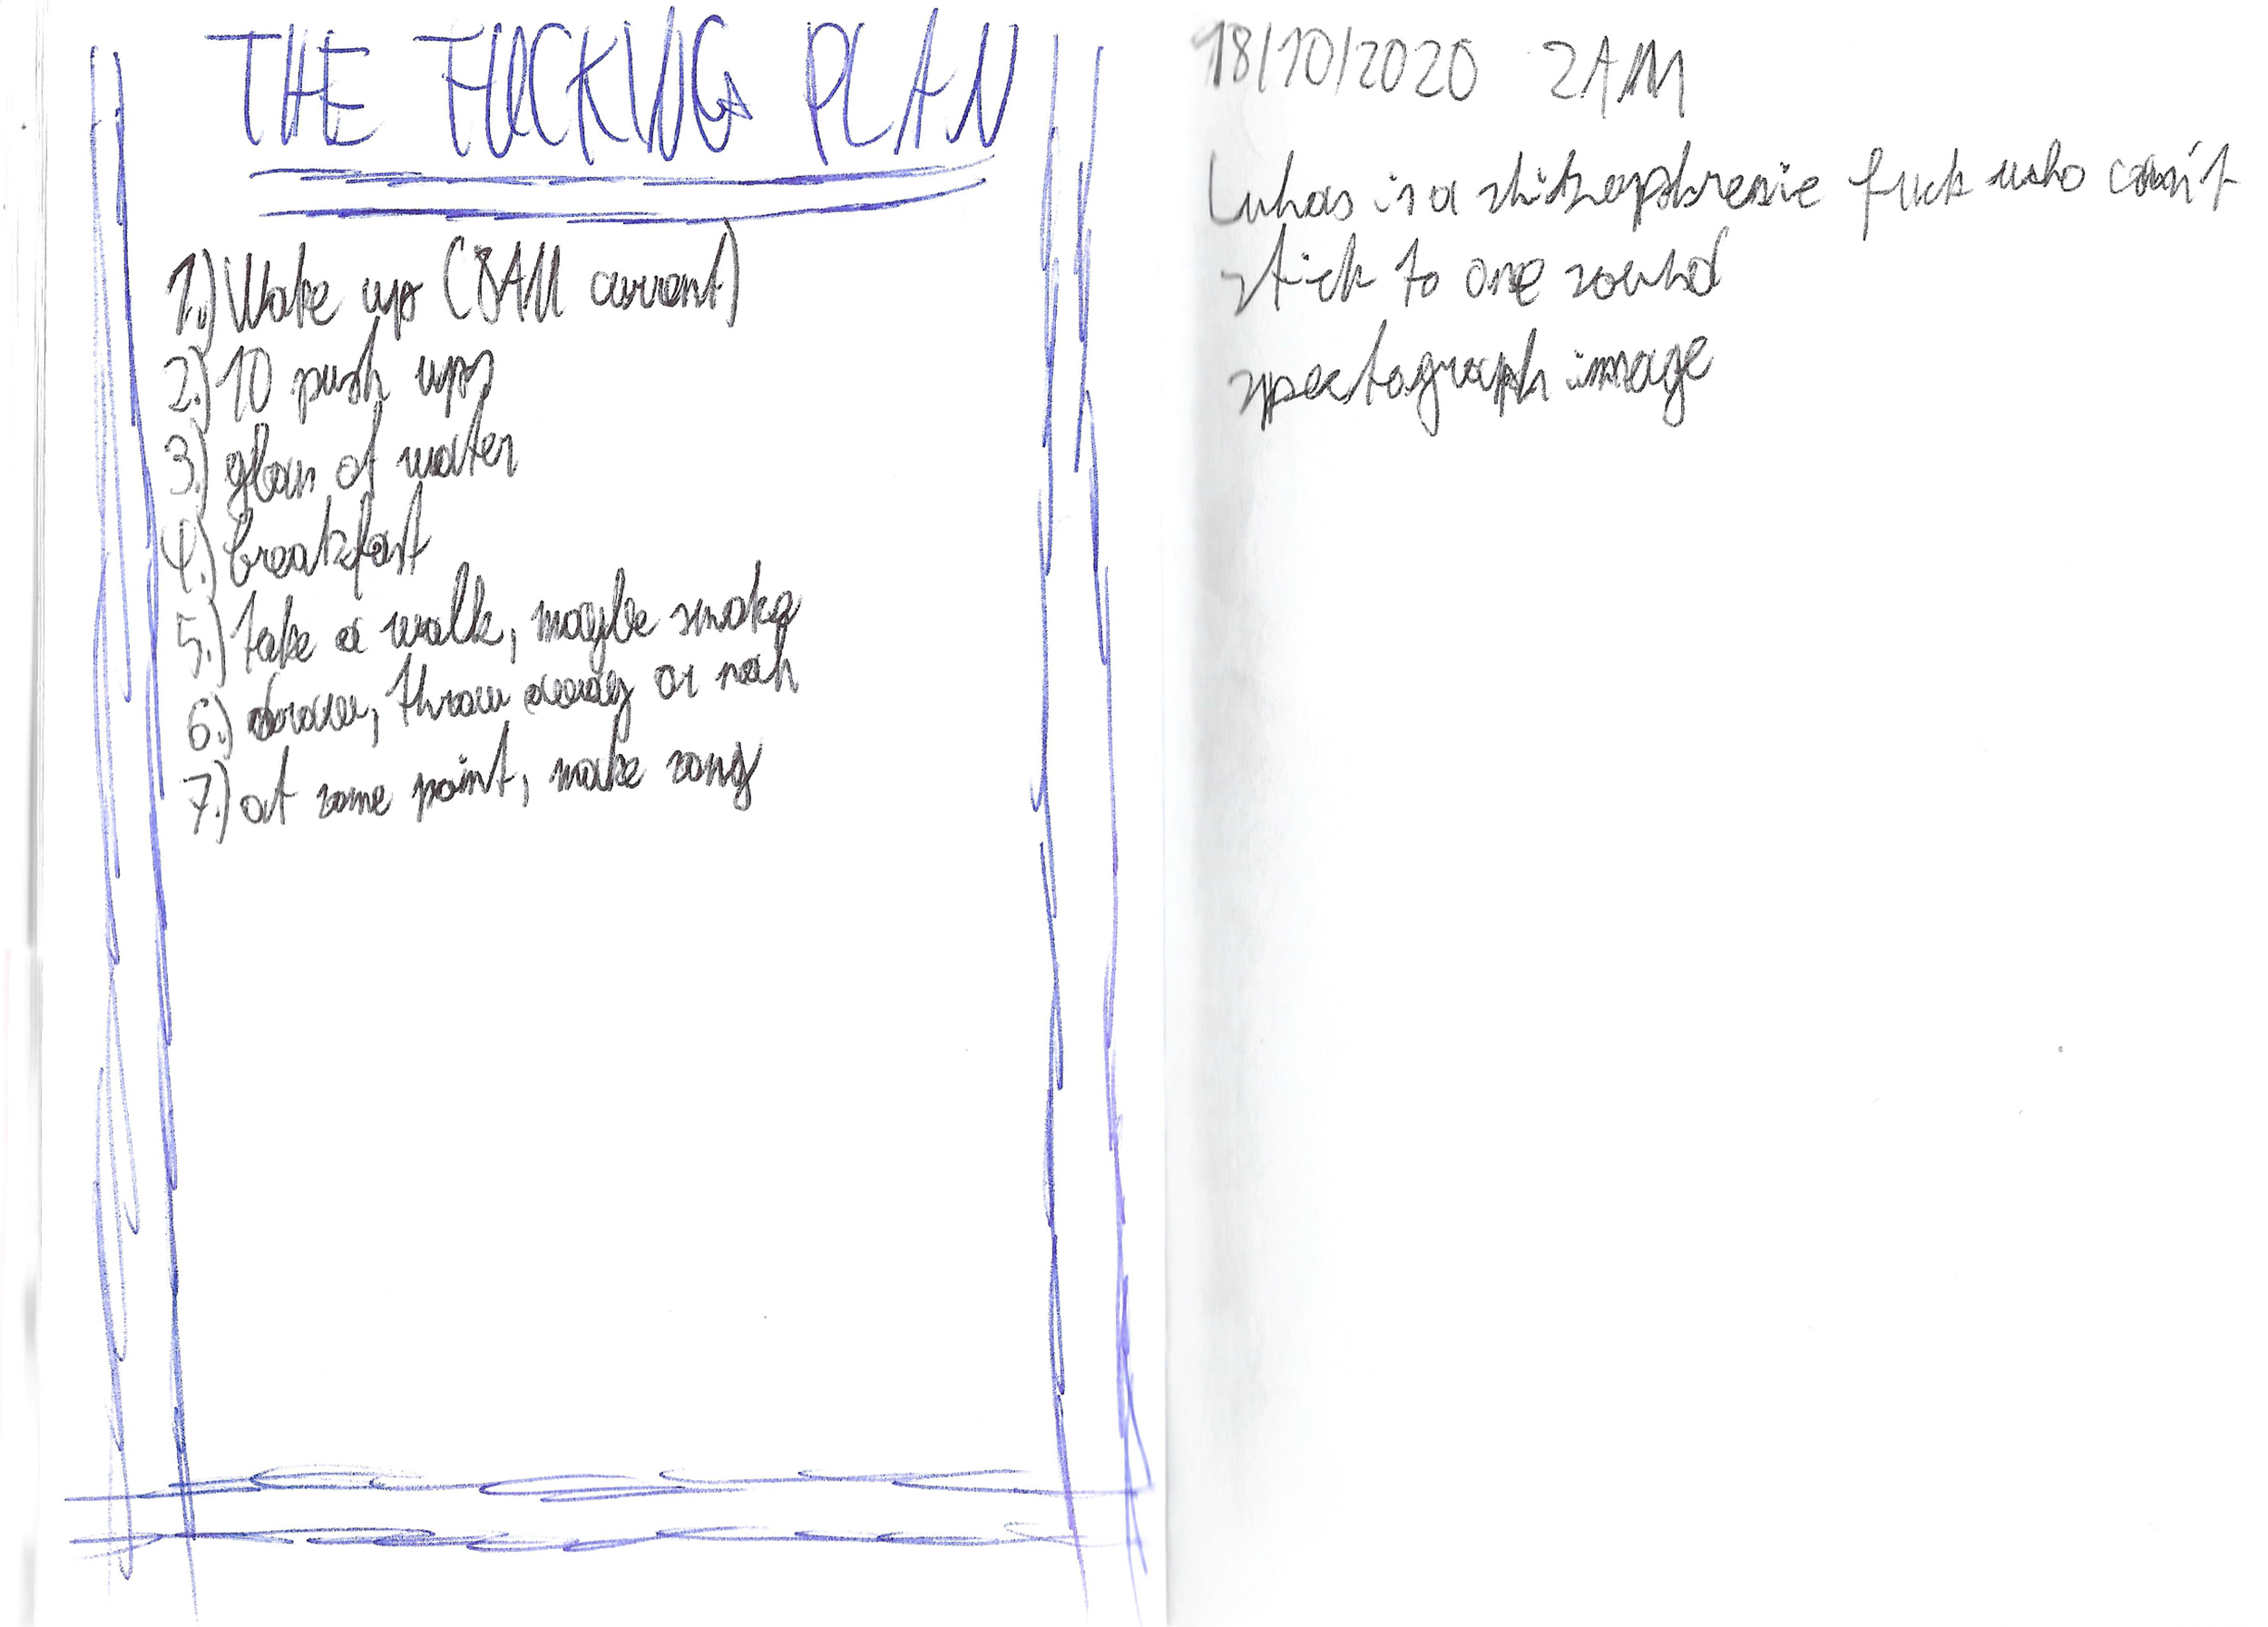 THE FUCKING PLAN
1.) Wake up (8AM current)
2.) 10 push ups
3.) glass of water
4.) breakfast
5.) take a walk, maybe smoke
6.) draw, throw away or nah
7.) at some point, make song
18/10/2020 2AM
Lukas is a shizophrenic fuck who can't
stick to one sound
spectograph image